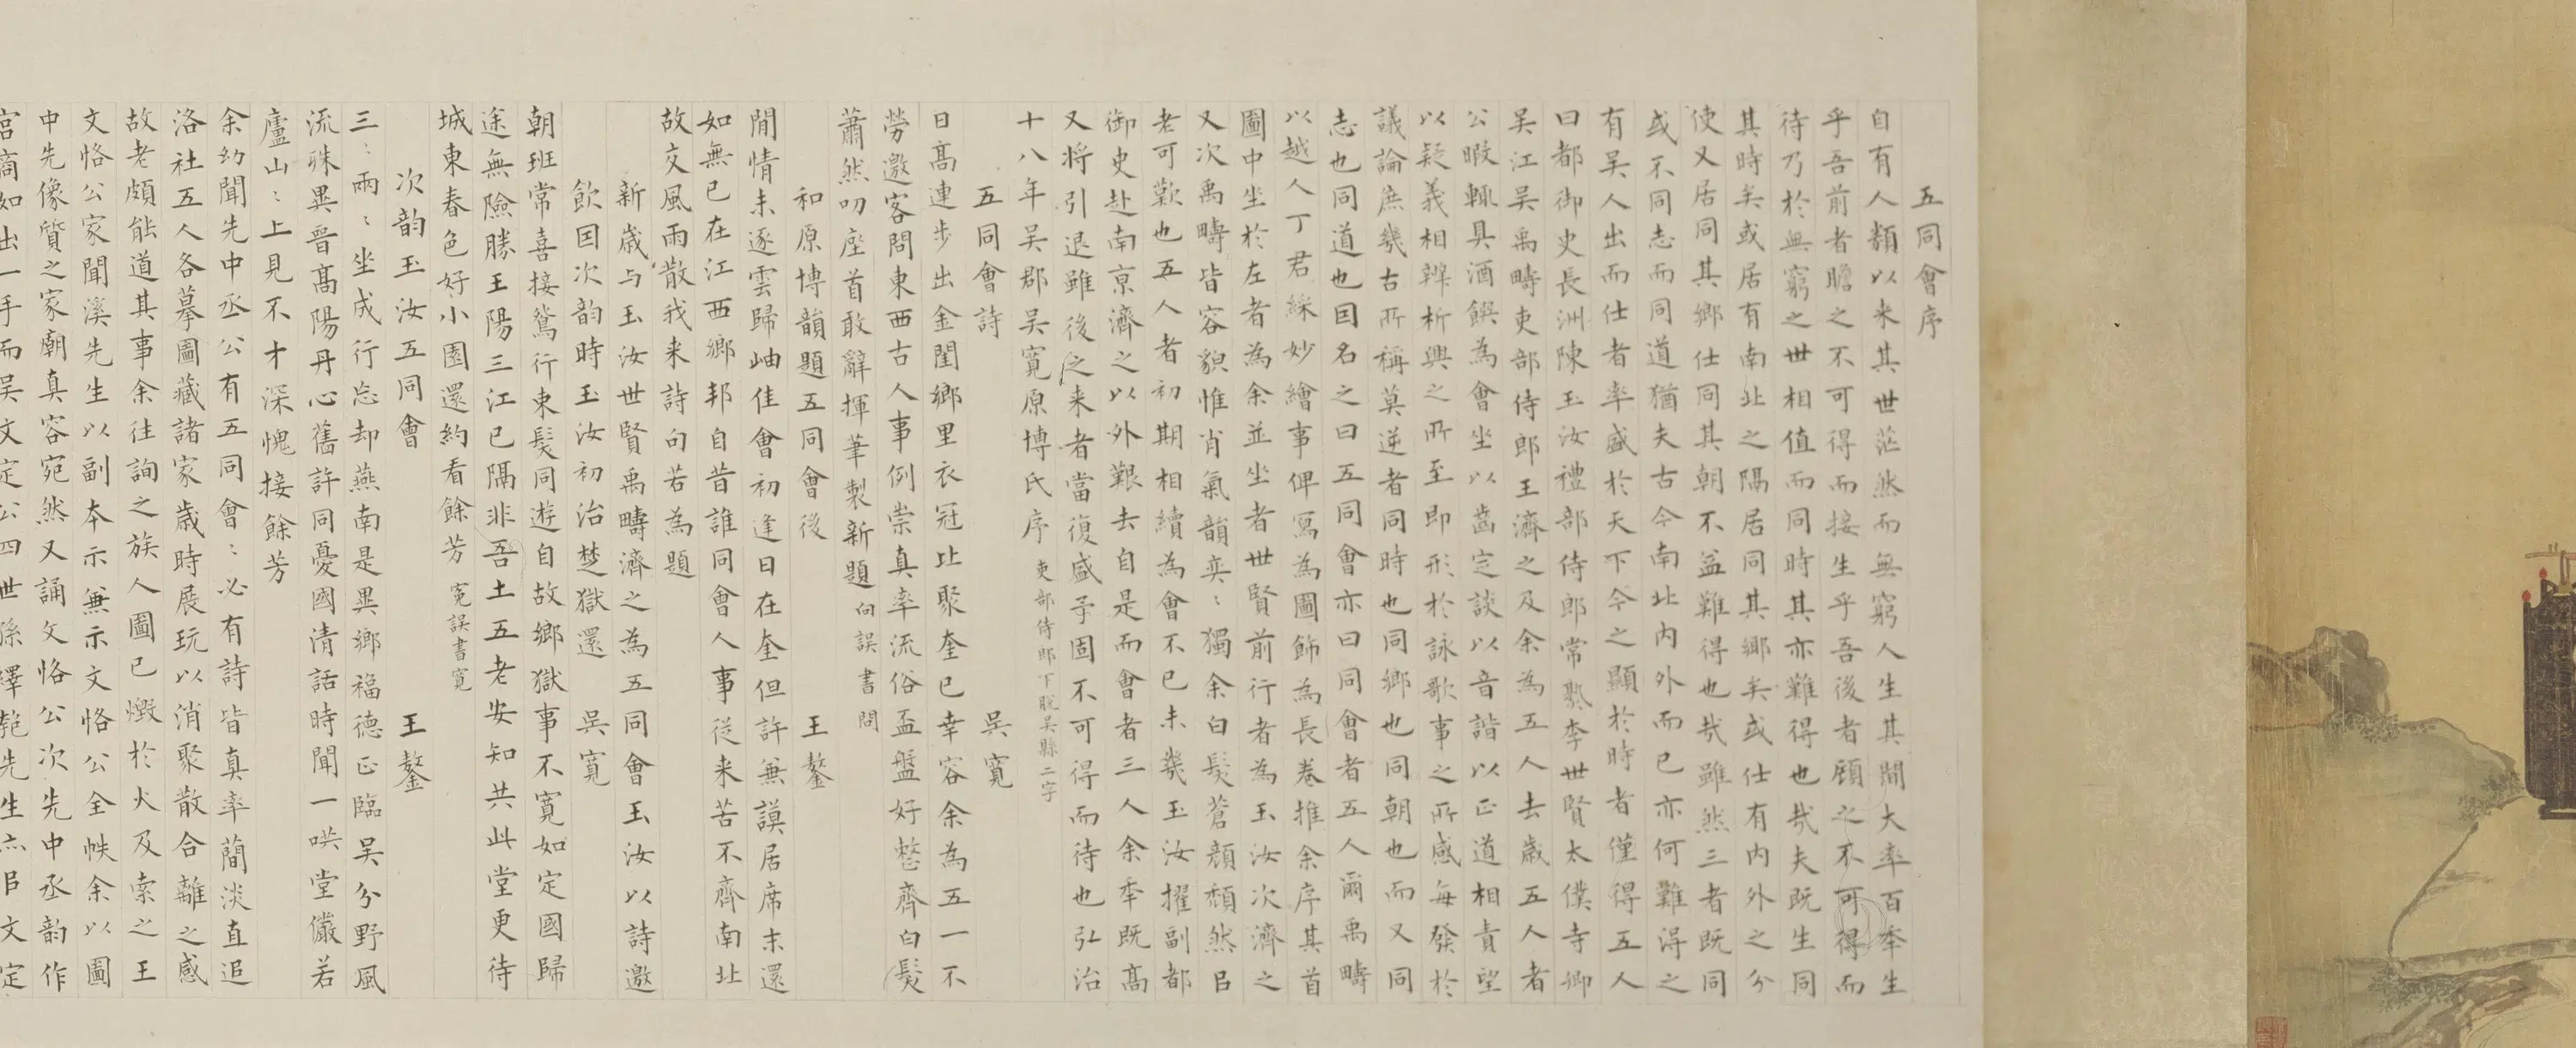 五同會序
自有人類以来其世茫然而無窮人生其間大率百年生
乎吾前者瞻之不可得而接生乎吾後者顧之不可得而
待乃於無窮之世相值而同時其亦難得也哉夫既生同
其時矣或居有南北之隔居同其鄉矣或仕有内外之分
使又居同其鄉仕同其朝不益難得也哉雖然三者既同
或不同志而同道猶夫古今南北内外而已亦何難得之
有吴人出而仕者率盛於天下今之顯於時者僅得五人
曰都御史長洲陳玉汝禮部侍郎常熟李世賢太僕寺卿
吴江吴禹疇吏部侍郎王濟之及余為五人去歲五人者
公暇輒具酒饌為會坐以齒定談以音諧以正道相責望
以疑義相辨析興之所至即形於詠歌事之所感每發於
議論庶幾古所稱莫逆者同時也同鄉也同朝也而又同
志也同道也因名之曰五同會亦曰同會者五人爾禹疇
以越人丁君綵妙繪事俾寫為圖飾為長卷推余序其首
圖中坐於左者為余並坐者世賢前行者為玉汝次濟之
又次禹疇皆容貌惟肖氣韻奕〻獨余白髮蒼顔頹然㠯
老可歎也五人者初期相續為會不已未幾玉汝擢副都
御史赴南京濟之以外艱去自是而會者三人余年既高
又将引退雖後之来者當復盛予固不可得而待也弘治
十八年吴郡吴寛原博氏序 吏部侍郎下脱吴縣二字
五同會詩 吴寛
日髙連步出金閨鄉里衣冠比聚奎已幸容余為五一不
勞邀客問東西古人事例崇真率流俗盃盤好整齊白髮
蕭然叨座首敢辭揮筆製新題 向誤書問
和原博韻題五同會後 王鏊
閒情未逐雲歸岫佳會初逢日在奎但許無謨居席末還
如無已在江西鄉邦自昔誰同會人事従来苦不齊南北
故交風雨散我来詩句若為題
新歲与玉汝世賢禹疇濟之為五同會玉汝以詩邀
飲因次韵時玉汝初治楚獄還 吴寛
朝班常喜接鴛行東髮同遊自故鄉獄事不寛如定國歸
途無險勝王陽三江已隔非吾土五老安知共此堂更待
城東春色好小園還約看餘芳 寃誤書寛
次韵玉汝五同會 王鏊
三〻兩〻坐成行忘却燕南是異鄉福德正臨吴分野風
流殊異晋髙陽丹心舊許同憂國清話時聞一哄堂儼若
廬山〻上見不才深愧接餘芳
余幼聞先中丞公有五同會〻必有詩皆真率蕳淡直追
洛社五人各摹圖藏諸家歲時展玩以消聚散合離之感
故老頗能道其事余往詢之族人圖已燬於火及索之王
文恪公家聞溪先生以副本示無示文恪公全帙余以圖
中先像質之家廟真容宛然又誦文恪公次先中丞韵作
宫商如出一手而吴文定公四世孫繹𦫿先生亦㠯文定